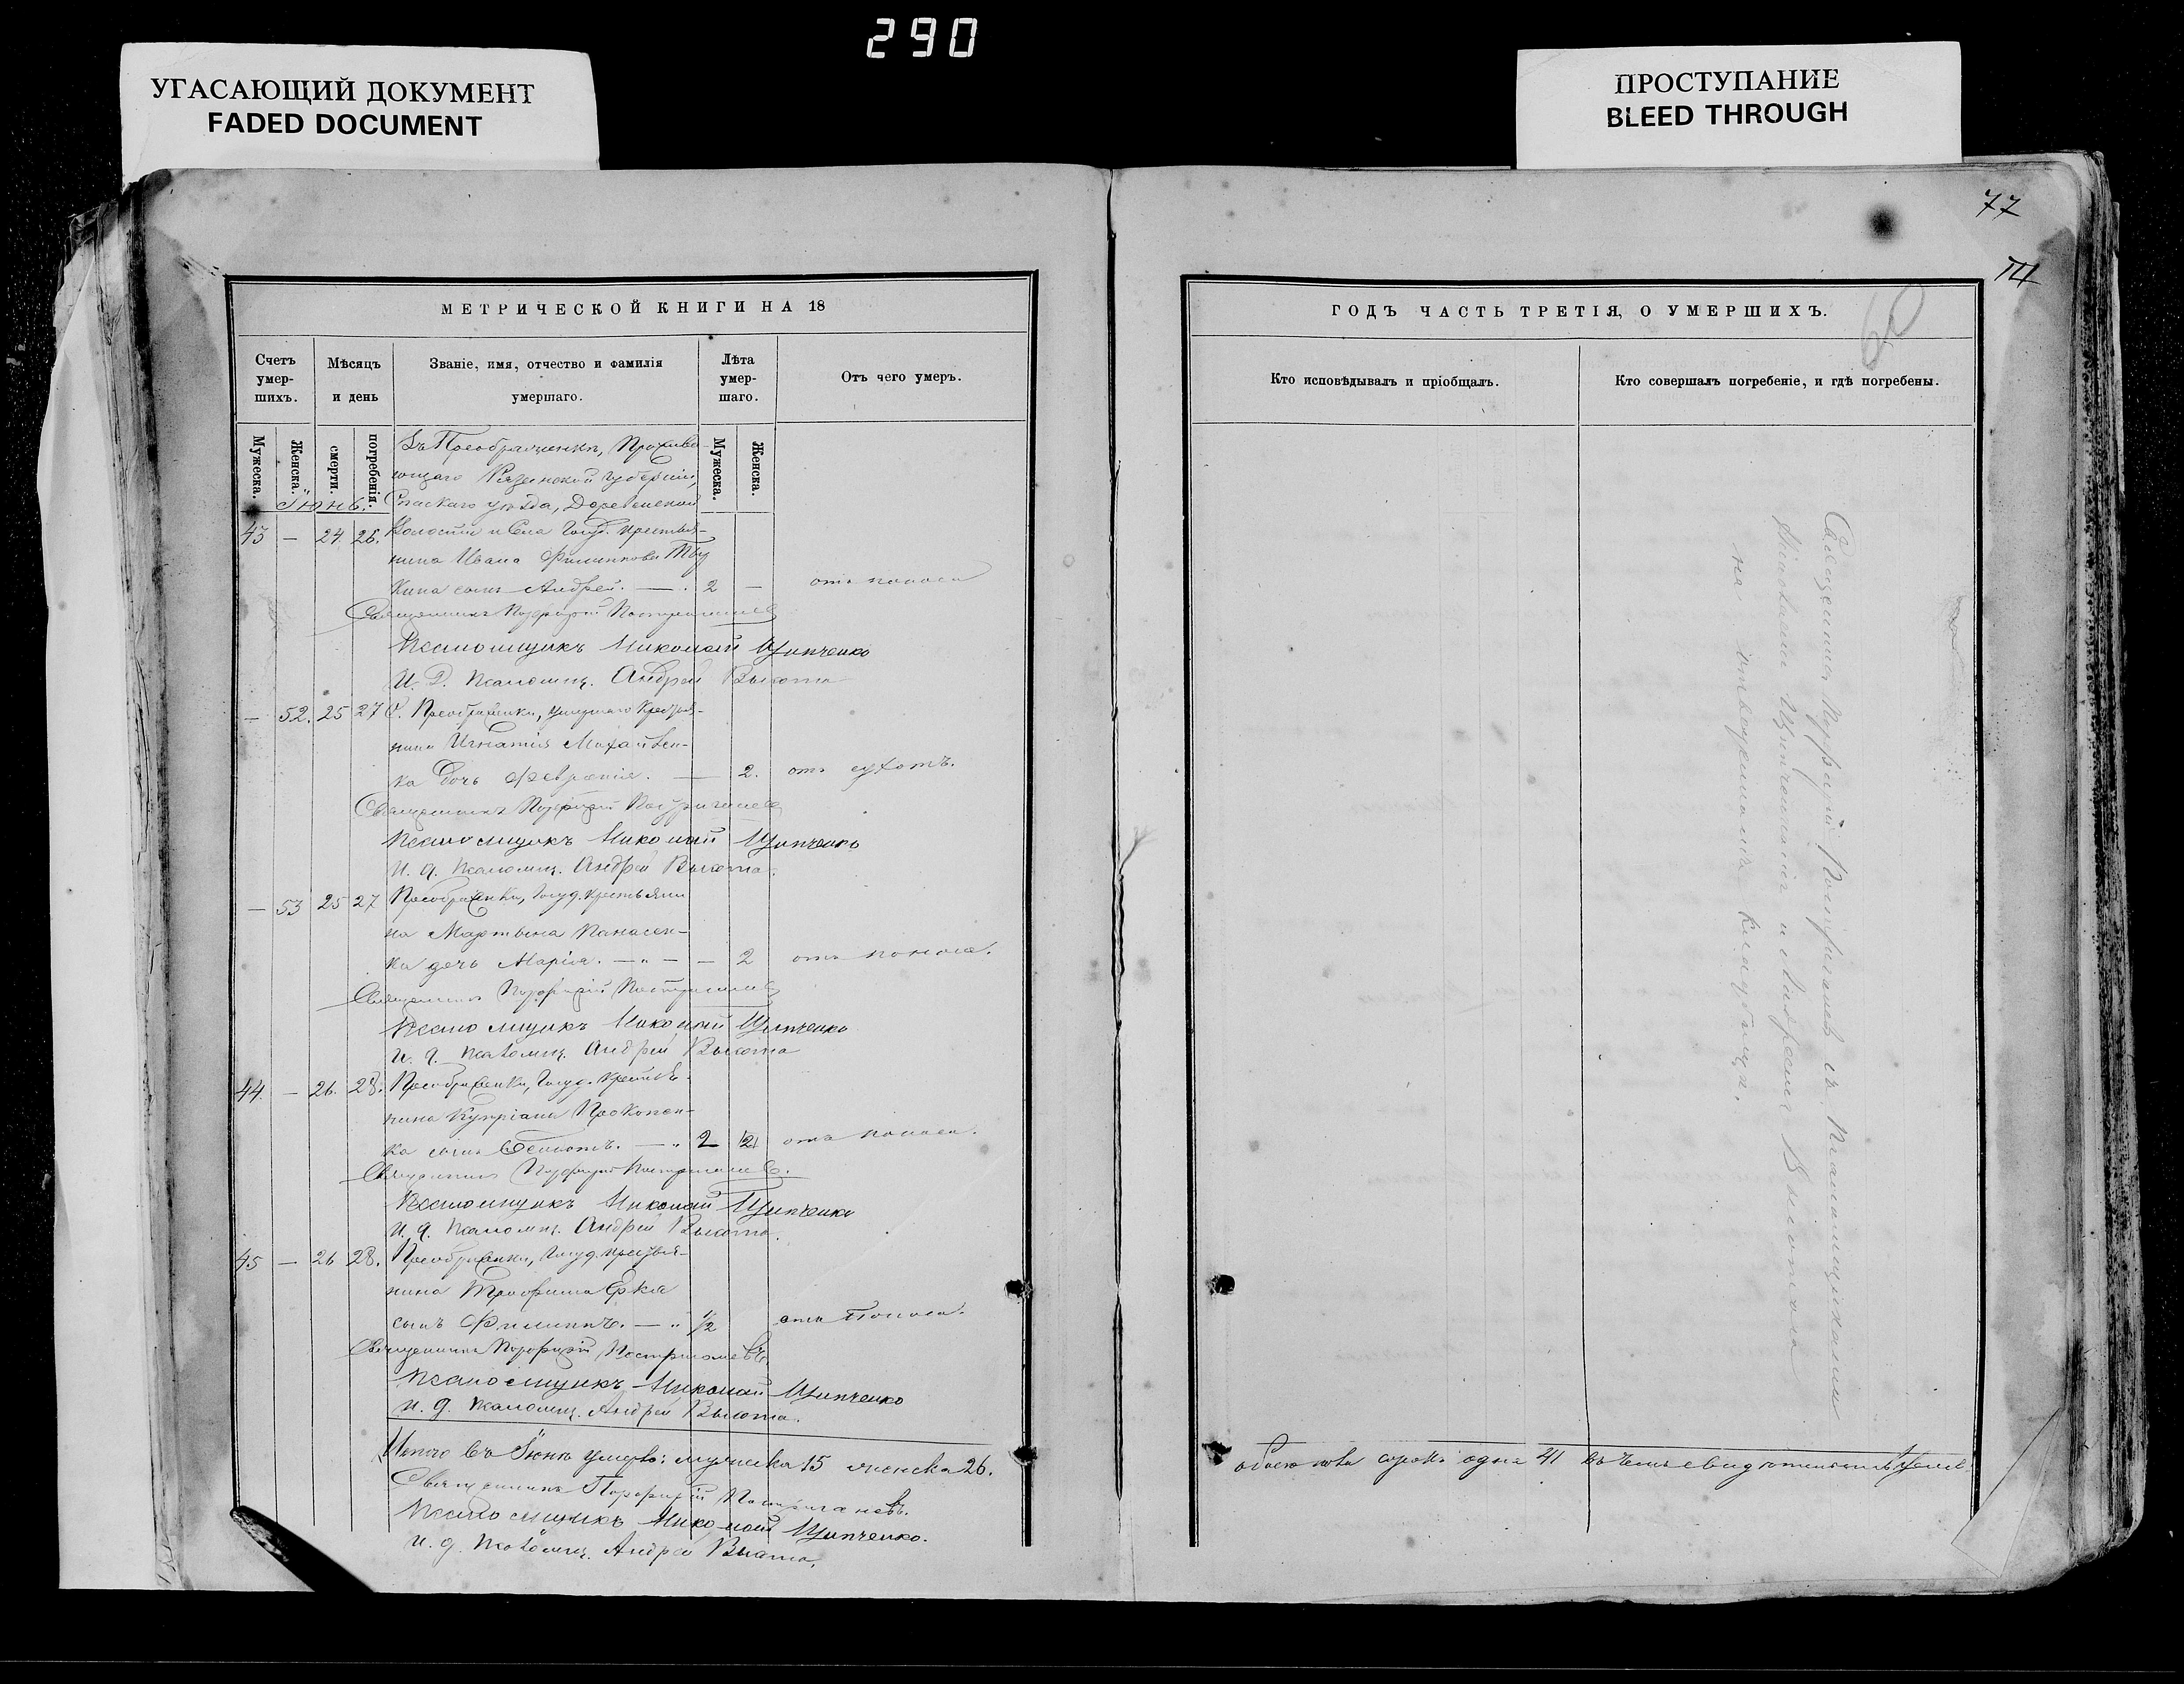 290
УГАСАЮЩИЙ ДОКУМЕНТ
FADED DOCUMENT
ПРОСТУПАНИЕ
BLEED THROUGH
77
МЕТРИЧЕСКОЙ КНИГИ НА 18
Счетъ умершихъ.
Мѣсяцъ и день
Званіе, имя, отчество и фамилія умершаго.
Лѣта умершаго.
Отъ чего умеръ.
Мужеска.
Женска.
смерти.
погребенія.
Мужеска.
Женска.
Въ Преображенкѣ, Прожива
ющаго Рязанской губерніи,
Спаскаго уѣзда, Деревенской
Іюнь.
43 — 24 26. Волости и Села Госуд. крестья-
нина Ивана Филиппова
кина сынъ Андрей. — 2 — отъ поноса
Священникъ Порфирій Пострыганевъ
Псаломщикъ Николай Щипченко
И. Д. Псаломщ. Андрей Высота
— 52. 25 27 С. Преображенки, Крестья-
нина Игнатія Михайлен-
ка дочь Февронія. — 2. отъ сухотъ.
Священникъ Порфирій Пострыганевъ
Псаломщикъ Николай Щипченко
И. д. Псаломщ. Андрей Высота.
— 53 25 27 Преображенки, Госуд. крестьяни
на Мартына Панасен-
ка дочь Марія. — " — — 2 отъ поноса.
Священникъ Порфирій Пострыганевъ
Псаломщикъ Николай Щипченко
и. д. Псаломщ. Андрей Высота
44. — 26. 28. Преображенки, Госуд. крестья-
нина Купріана Прокопен-
ка сынъ — " 2 отъ поноса.
Священникъ Порфирій Пострыганевъ.
Псаломщикъ Николай Щипченко
и. д. Псаломщ. Андрей Высота.
45 — 26 28. Преображенки, Госуд. крестья-
нина Трофима
сынъ Филиппъ. — " 1/2 отъ Поноса.
Священникъ Порфирій Пострыганевъ
Псаломщикъ Николай Щипченко
и. д. Псаломщ. Андрей Высота.
Итого въ Іюнѣ умерло: мужеска 15 женска 26.
Священникъ Порфирій Пострыганевъ.
Псаломщикъ Николай Щипченко.
и. д. Псаломщ. Андрей Высота.
ГОДЪ ЧАСТЬ ТРЕТІЯ, О УМЕРШИХЪ.
Кто исповѣдывалъ и пріобщалъ.
Кто совершалъ погребеніе, и гдѣ погребены.
Священникъ Порфирій Пострыганевъ съ Псаломщиками
Николаемъ Щипченкомъ и Андреемъ Высотою
на кладбищѣ.
обоего пола сорокъ одна 41 въ чемъ